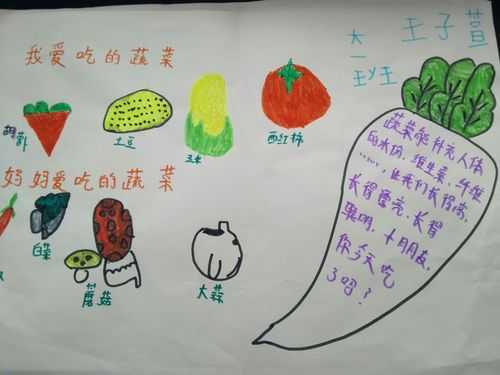 我爱吃的蔬菜
大一班
王子萱
胡萝卜
土豆
玉米
西红柿
妈妈爱吃的蔬菜
白菜
蘑菇
大蒜
蔬菜能补充人体
的水份、维生素、纤维
……，让我们长得高，
长得漂亮，长得
聪明，小朋友，
你今天吃
了吗？